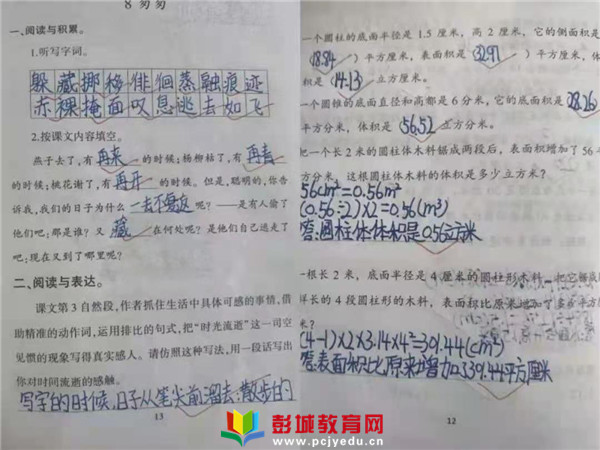 8 匆匆
一、阅读与积累。
1.听写字词。
躲藏挪移徘徊蒸融痕迹
赤裸掩面叹息逃去如飞
2.按课文内容填空。
燕子去了,有再来的时候;杨柳枯了,有再青
的时候;桃花谢了,有再开的时候。但是,聪明的,你告
诉我,我们的日子为什么一去不复返呢?——是有人偷了
他们吧:那是谁?又藏在何处呢?是他们自己逃走了
吧:现在又到了哪里呢?
二、阅读与表达。
课文第3自然段,作者抓住生活中具体可感的事情,借
助精准的动作词,运用排比的句式,把“时光流逝”这一司空
见惯的现象写得真实感人。请仿照这种写法,用一段话写出
你对时间流逝的感触。
写字的时候,日子从笔尖前溜去;散步的
13
一个圆柱的底面半径是 1.5 厘米,高 2 厘米,它的侧面积是
(18.84)平方厘米,表面积是(32.97)平方厘米,
积是(14.13)立方厘米。
一个圆锥的底面直径和高都是 6 分米,它的底面积是(28.26)
平方分米,体积是(56.52)立方分米。
把一个长 2 米的圆柱体木料锯成两段后,表面积增加了 56
方分米,这根圆柱体木料的体积是多少立方米?
56cm²=0.56m²
(0.56÷2)×2=0.56(m³)
答:圆柱体体积是0.56立方米
一根长 2 米,底面半径是 4 厘米的圆柱形木料,把它锯成
样长的 4 段圆柱形的木料,表面积比原来增加了多少平方
米?
(4-1)×2×3.14×4²=301.44(cm²)
答:表面积比原来增加了339.44平方厘米
12
彭城教育网
www.pcjyedu.cn